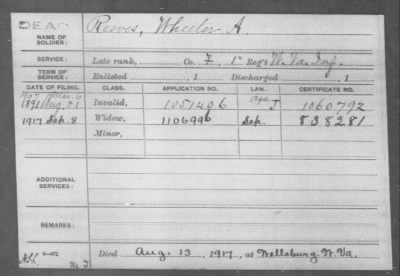 DEAD
NAME OF SOLDIER: Reeves, Wheeler A.
SERVICE: Late rank, Co. F, 1" Reg't W. Va. Inf.
TERM OF SERVICE: Enlisted , 1 Discharged , 1
DATE OF FILING. CLASS. APPLICATION NO. LAW. CERTIFICATE NO.
1891 Aug. 21 Invalid, 1051496 Age J 1060792
1917 Sep. 8 Widow, 1106996 Sep. 838281
Minor,
ADDITIONAL SERVICES:
REMARKS:
Died Aug. 13, 1917, at Wellsburg, W. Va.